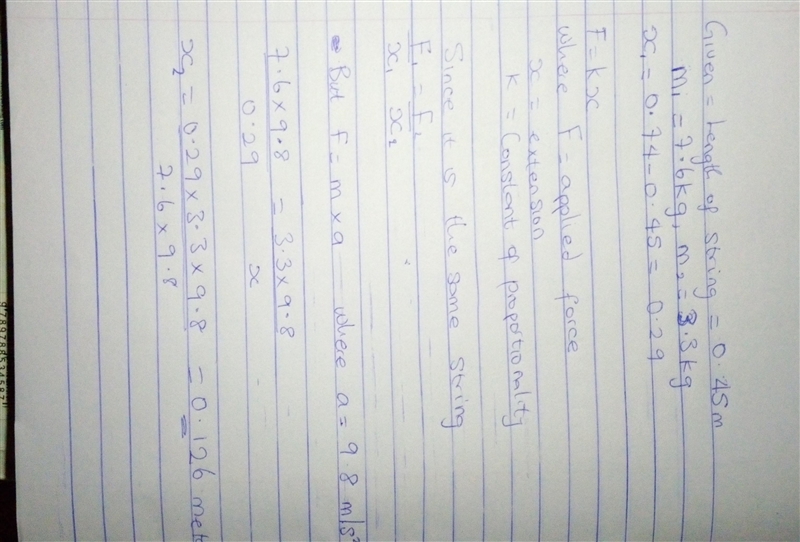 Given = Length of string = 0.45m
m₁ = 7.6kg, m₂ = 3.3kg
x₁ = 0.74 - 0.45 = 0.29
F = kx
where F = applied force
x = extension
k = Constant of proportionality
Since it is the same string
F₁ = F₂
x₁ x₂
But F = m × a where a = 9.8 m/s²
7.6 × 9.8 = 3.3 × 9.8
0.29 x
x₂ = 0.29 × 3.3 × 9.8 = 0.126
7.6 × 9.8